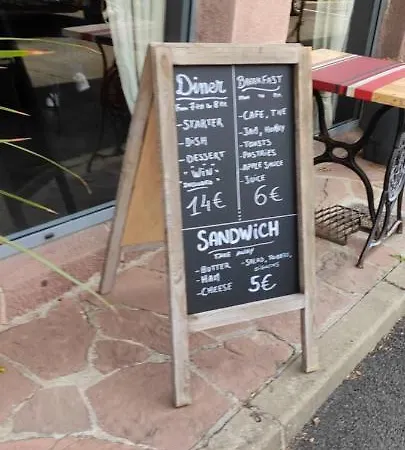 Diner
From 7PM to 9PM
-STARTER
-DISH
-DESSERT
"WINE"
INCLUDED
14€
BREAKFAST
-CAFE, THE
-JAM, HONEY
-TOASTS
-PASTRIES
-APPLE SAUCE
-JUICE
6€
SANDWICH
TAKE AWAY
-BUTTER
-HAM
-CHEESE
-SALAD,
5€